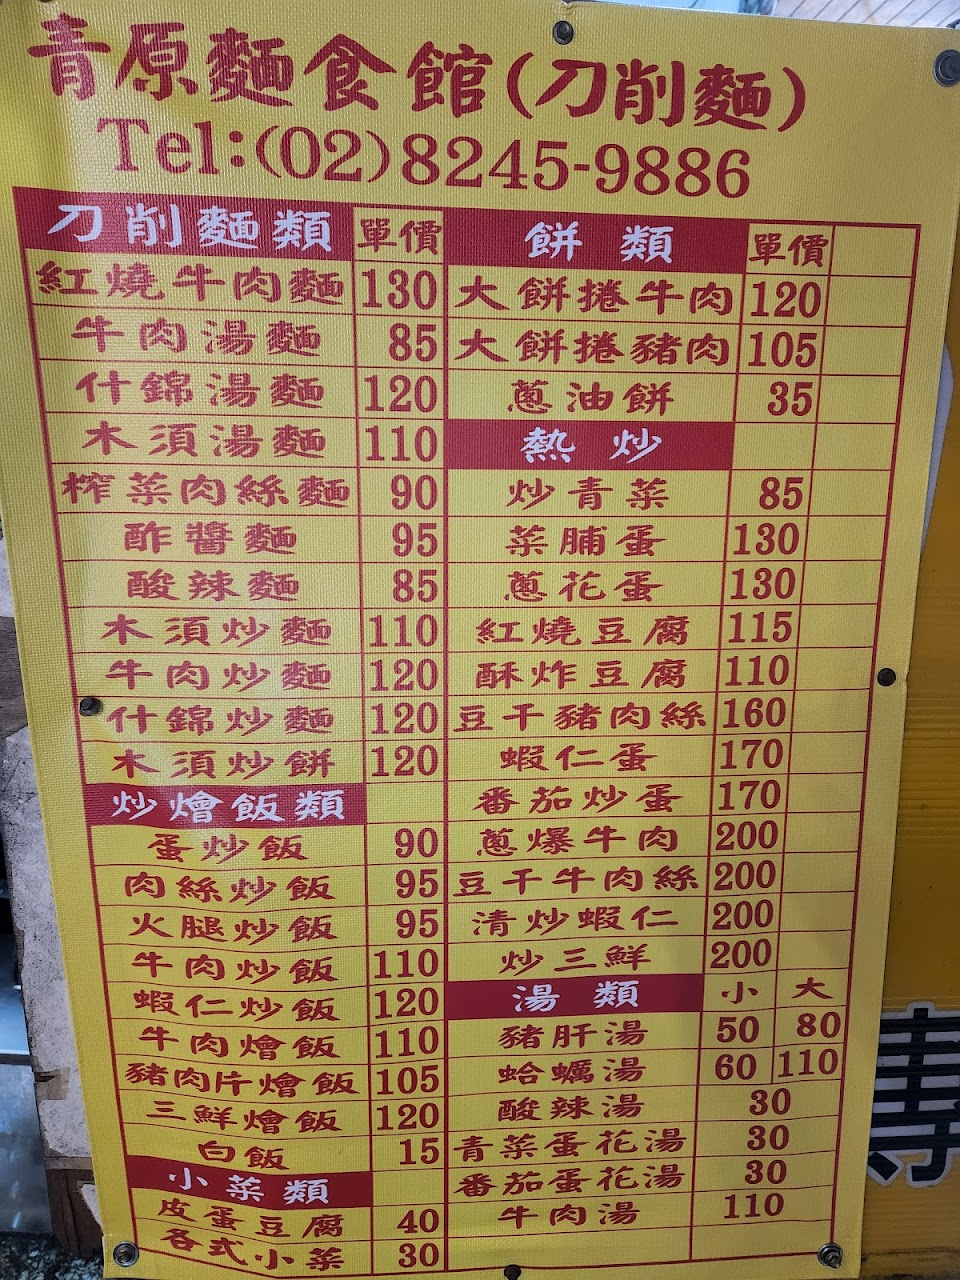 青原麵食館(刀削麵)
Tel:(02)8245-9886
刀削麵類 單價
紅燒牛肉麵 130
牛肉湯麵 85
什錦湯麵 120
木須湯麵 110
榨菜肉絲麵 90
酢醬麵 95
酸辣麵 85
木須炒麵 110
牛肉炒麵 120
什錦炒麵 120
木須炒餅 120
炒燴飯類
蛋炒飯 90
肉絲炒飯 95
火腿炒飯 95
牛肉炒飯 110
蝦仁炒飯 120
牛肉燴飯 110
豬肉片燴飯 105
三鮮燴飯 120
白飯 15
小菜類
皮蛋豆腐 40
各式小菜 30
餅類 單價
大餅捲牛肉 120
大餅捲豬肉 105
蔥油餅 35
熱炒
炒青菜 85
菜脯蛋 130
蔥花蛋 130
紅燒豆腐 115
酥炸豆腐 110
豆干豬肉絲 160
蝦仁蛋 170
番茄炒蛋 170
蔥爆牛肉 200
豆干牛肉絲 200
清炒蝦仁 200
炒三鮮 200
湯類 小 大
豬肝湯 50 80
蛤蠣湯 60 110
酸辣湯 30
青菜蛋花湯 30
番茄蛋花湯 30
牛肉湯 110